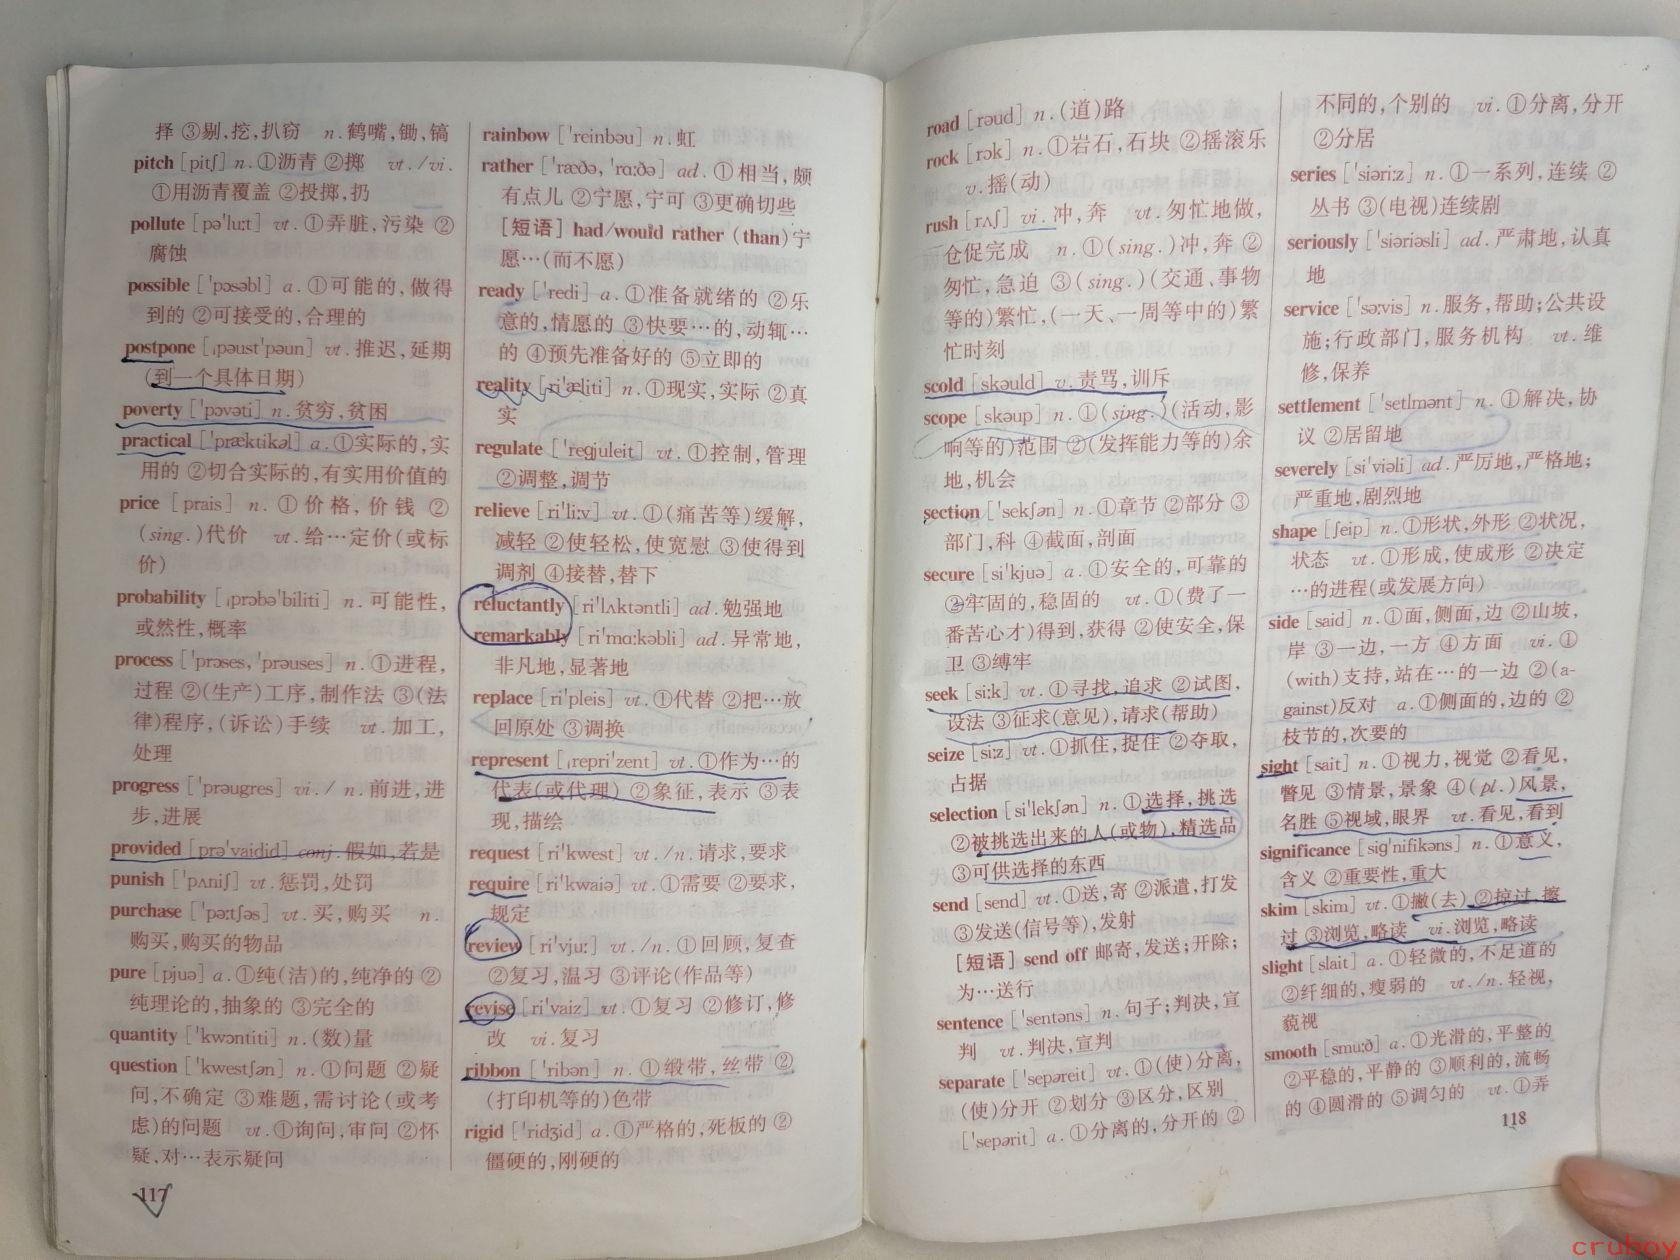 择 ③剔,挖,扒窃 n.鹤嘴,锄,镐
pitch [pitʃ] n.①沥青 ②掷 vt./vi.
①用沥青覆盖 ②投掷,扔
pollute [pə'lu:t] vt.①弄脏,污染 ②
腐蚀
possible ['pɔsəbl] a.①可能的,做得
到的 ②可接受的,合理的
postpone [ˌpəust'pəun] vt.推迟,延期
(到一个具体日期)
poverty ['pɔvəti] n.贫穷,贫困
practical ['præktikəl] a.①实际的,实
用的 ②切合实际的,有实用价值的
price [prais] n.①价格,价钱 ②
(sing.)代价 vt.给…定价(或标
价)
probability [ˌprɔbə'biliti] n.可能性,
或然性,概率
process ['prɔses, 'prəuses] n.①进程,
过程 ②(生产)工序,制作法 ③(法
律)程序,(诉讼)手续 vt.加工,
处理
progress ['prəugres] vi./ n.前进,进
步,进展
provided [prə'vaidid] conj.假如,若是
punish ['pʌniʃ] vt.惩罚,处罚
purchase ['pə:tʃəs] vt.买,购买 n.
购买,购买的物品
pure [pjuə] a.①纯(洁)的,纯净的 ②
纯理论的,抽象的 ③完全的
quantity ['kwɔntiti] n.(数)量
question ['kwestʃən] n.①问题 ②疑
问,不确定 ③难题,需讨论(或考
虑)的问题 vt.①询问,审问 ②怀
疑,对…表示疑问
117
rainbow ['reinbəu] n.虹
rather ['ræðə, 'rɑ:ðə] ad.①相当,颇
有点儿 ②宁愿,宁可 ③更确切些
[短语] had/would rather (than)宁
愿…(而不愿)
ready ['redi] a.①准备就绪的 ②乐
意的,情愿的 ③快要…的,动辄…
的 ④预先准备好的 ⑤立即的
reality [ri'æliti] n.①现实,实际 ②真
实
regulate ['regjuleit] vt.①控制,管理
②调整,调节
relieve [ri'li:v] vt.①(痛苦等)缓解,
减轻 ②使轻松,使宽慰 ③使得到
调剂 ④接替,替下
reluctantly [ri'lʌktəntli] ad.勉强地
remarkably [ri'mɑ:kəbli] ad.异常地,
非凡地,显著地
replace [ri'pleis] vt.①代替 ②把…放
回原处 ③调换
represent [ˌrepri'zent] vt.①作为…的
代表(或代理) ②象征,表示 ③表
现,描绘
request [ri'kwest] vt./n.请求,要求
require [ri'kwaiə] vt.①需要 ②要求,
规定
review [ri'vju:] vt./n.①回顾,复查
②复习,温习 ③评论(作品等)
revise [ri'vaiz] vt.①复习 ②修订,修
改 vi.复习
ribbon ['ribən] n.①缎带,丝带 ②
(打印机等的)色带
rigid ['ridʒid] a.①严格的,死板的 ②
僵硬的,刚硬的
road [rəud] n.(道)路
rock [rɔk] n.①岩石,石块 ②摇滚乐
v.摇(动)
rush [rʌʃ] vi.冲,奔 vt.匆忙地做,
仓促完成 n.①(sing.)冲,奔 ②
匆忙,急迫 ③(sing.)(交通、事物
等的)繁忙,(一天、一周等中的)繁
忙时刻
scold [skəuld] v.责骂,训斥
scope [skəup] n.①(sing.)(活动,影
响等的)范围 ②(发挥能力等的)余
地,机会
section ['sekʃən] n.①章节 ②部分 ③
部门,科 ④截面,剖面
secure [si'kjuə] a.①安全的,可靠的
②牢固的,稳固的 vt.①(费了一
番苦心才)得到,获得 ②使安全,保
卫 ③缚牢
seek [si:k] vt.①寻找,追求 ②试图,
设法 ③征求(意见),请求(帮助)
seize [si:z] vt.①抓住,捉住 ②夺取,
占据
selection [si'lekʃən] n.①选择,挑选
②被挑选出来的人(或物),精选品
③可供选择的东西
send [send] vt.①送,寄 ②派遣,打发
③发送(信号等),发射
[短语] send off 邮寄,发送;开除;
为…送行
sentence ['sentəns] n.句子;判决,宣
判 vt.判决,宣判
separate ['sepəreit] vt.①(使)分离,
(使)分开 ②划分 ③区分,区别
['sepərit] a.①分离的,分开的 ②
不同的,个别的 vi.①分离,分开
②分居
series ['siəri:z] n.①一系列,连续 ②
丛书 ③(电视)连续剧
seriously ['siəriəsli] ad.严肃地,认真
地
service ['sə:vis] n.服务,帮助;公共设
施;行政部门,服务机构 vt.维
修,保养
settlement ['setlmənt] n.①解决,协
议 ②居留地
severely [si'viəli] ad.严厉地,严格地;
严重地,剧烈地
shape [ʃeip] n.①形状,外形 ②状况,
状态 vt.①形成,使成形 ②决定
…的进程(或发展方向)
side [said] n.①面,侧面,边 ②山坡,
岸 ③一边,一方 ④方面 vi.①
(with)支持,站在…的一边 ②(a-
gainst)反对 a.①侧面的,边的 ②
枝节的,次要的
sight [sait] n.①视力,视觉 ②看见,
瞥见 ③情景,景象 ④(pl.)风景,
名胜 ⑤视域,眼界 vt.看见,看到
significance [sig'nifikəns] n.①意义,
含义 ②重要性,重大
skim [skim] vt.①撇(去) ②掠过,擦
过 ③浏览,略读 vi.浏览,略读
slight [slait] a.①轻微的,不足道的
②纤细的,瘦弱的 vt./n.轻视,
藐视
smooth [smu:ð] a.①光滑的,平整的
②平稳的,平静的 ③顺利的,流畅
的 ④圆滑的 ⑤调匀的 vt.①弄
118
cruboy